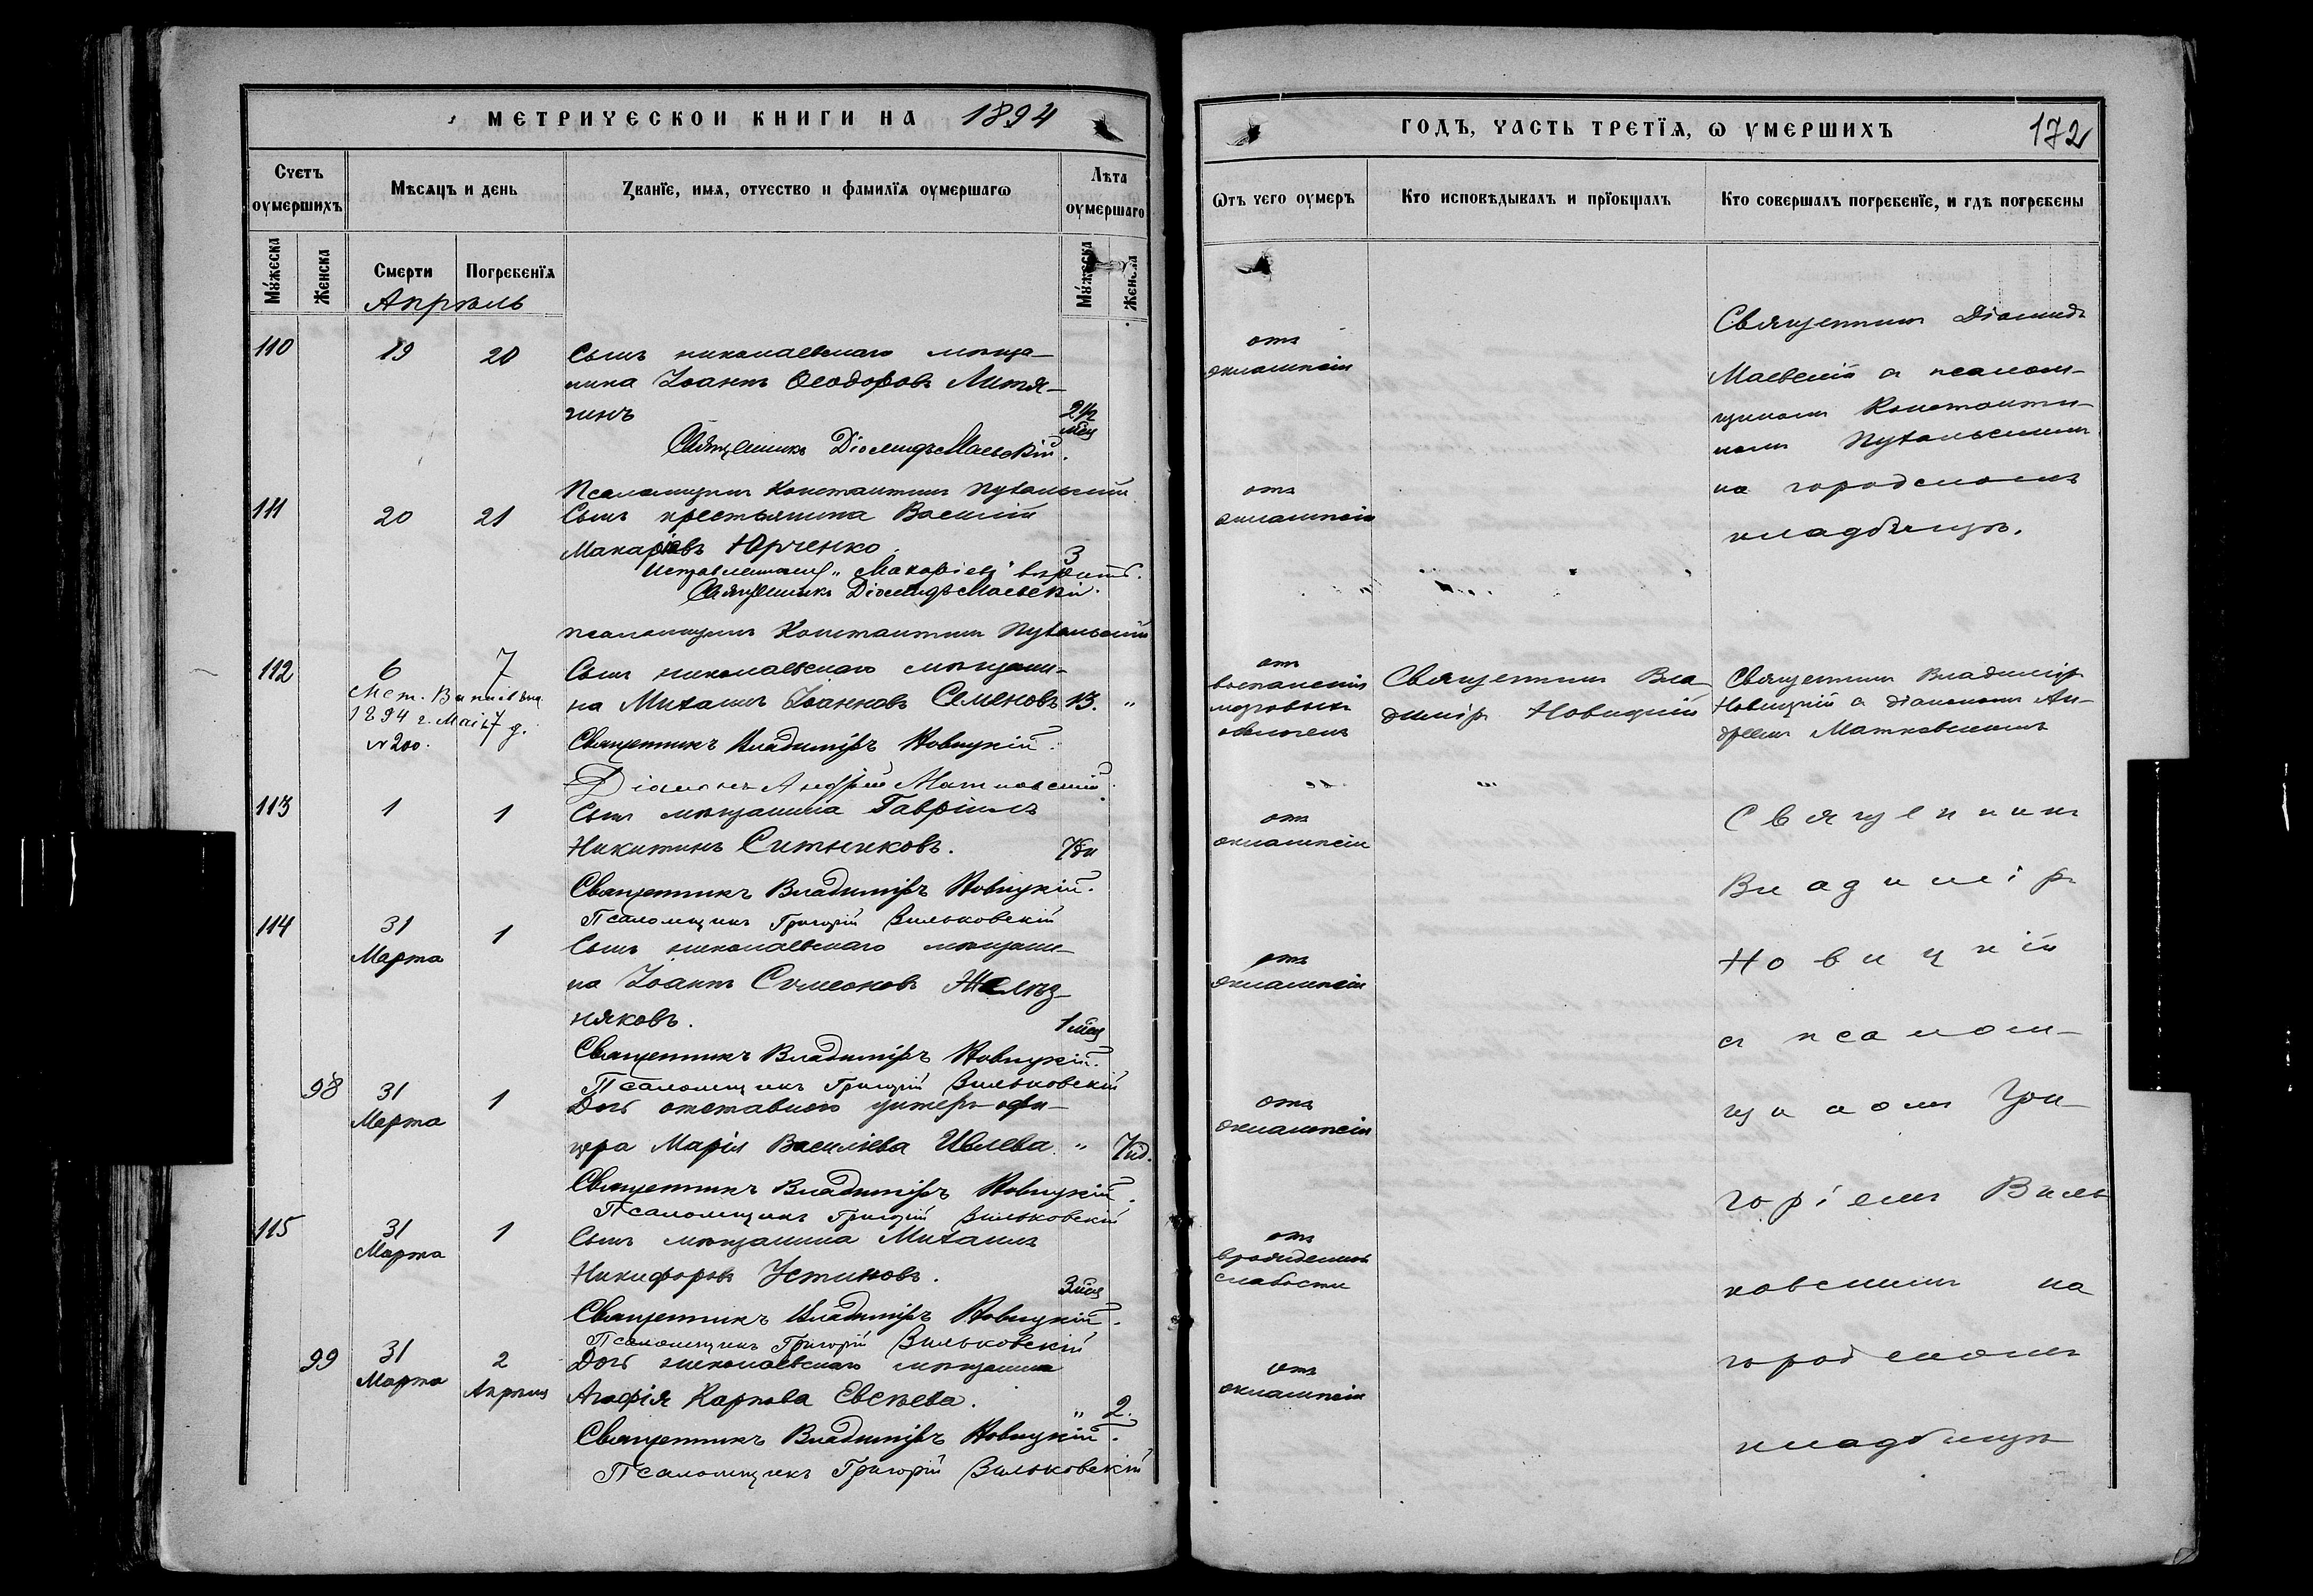 МЕТРИЧЕСКОЙ КНИГИ НА 1894
Счетъ оумершихъ
Мѣсяцъ и день
Званїе, имя, отчество и фамилїя оумершагѡ
Лѣта оумершаго
Мꙋжеска
Женска
Смерти
Погребенїя
Мꙋжеска
Женска
Апрѣль
110 19 20 Сынъ николаевскаго мѣща-
нина Іоаннъ Ѳеодоровъ Литя-
гинъ 2½ мѣс
Священникъ Діомидъ Маевскій.
Псаломщикъ Константинъ
111 20 21 Сынъ крестьянина Василій
Макаріевъ Юрченко. 3
"Макаріевъ" вѣрить.
Священникъ Діомидъ Маевскій.
псаломщикъ Константинъ
112 6 7 Сынъ николаевскаго мѣщани-
на Михаилъ Іоанновъ Семеновъ 13. "
1894 г. Маія 7 д.
№ 200.
Священникъ Владиміръ Новицкій.
Діаконъ Андрей Матковскій.
113 1 1 Сынъ мѣщанина Гавріилъ
Никитинъ Ситниковъ.
Священникъ Владиміръ Новицкій.
Псаломщикъ Григорій Вильковскій
114 31 Марта 1 Сынъ николаевскаго мѣщани-
на Іоаннъ Симеоновъ Желѣз-
няковъ. 1 мѣс
Священникъ Владиміръ Новицкій.
Псаломщикъ Григорій Вильковскій
98 31 Марта 1 Дочь отставного унтеръ-офи-
цера Марія Василіева Ивлева. "
Священникъ Владиміръ Новицкій.
Псаломщикъ Григорій Вильковскій
115 31 Марта 1 Сынъ мѣщанина Михаилъ
Никифоровъ Устиновъ. 3 мѣс
Священникъ Владиміръ Новицкій.
Псаломщикъ Григорій Вильковскій
99 31 Марта 2 Апрѣля Дочь николаевскаго мѣщанина
Агафія Карпова Евсѣева. " 2.
Священникъ Владиміръ Новицкій.
Псаломщикъ Григорій Вильковскій
ГОДЪ, ЧАСТЬ ТРЕТЇЯ, Ѡ УМЕРШИХЪ 172
Ѿтъ чего оумеръ
Кто исповѣдывалъ и прїобщалъ
Кто совершалъ погребенїе, и гдѣ погребены
отъ
эклампсіи
Священникъ Діомидъ
Маевскій съ псалом-
щикомъ Константи-
номъ
на городскомъ
кладбищѣ.
отъ
эклампсіи
отъ
воспаленія
мозговыхъ
оболочекъ
Священникъ Вла-
диміръ Новицкій
Священникъ Владиміръ
Новицкій съ діакономъ Ан-
дреемъ Матковскимъ
отъ
эклампсіи
Священникъ
Владиміръ
Новицкій
съ псалом-
щикомъ Гри-
горіемъ Виль-
ковскимъ на
городскомъ
кладбищѣ
отъ
эклампсіи
отъ
эклампсіи
отъ
врожденной
слабости
отъ
эклампсіи